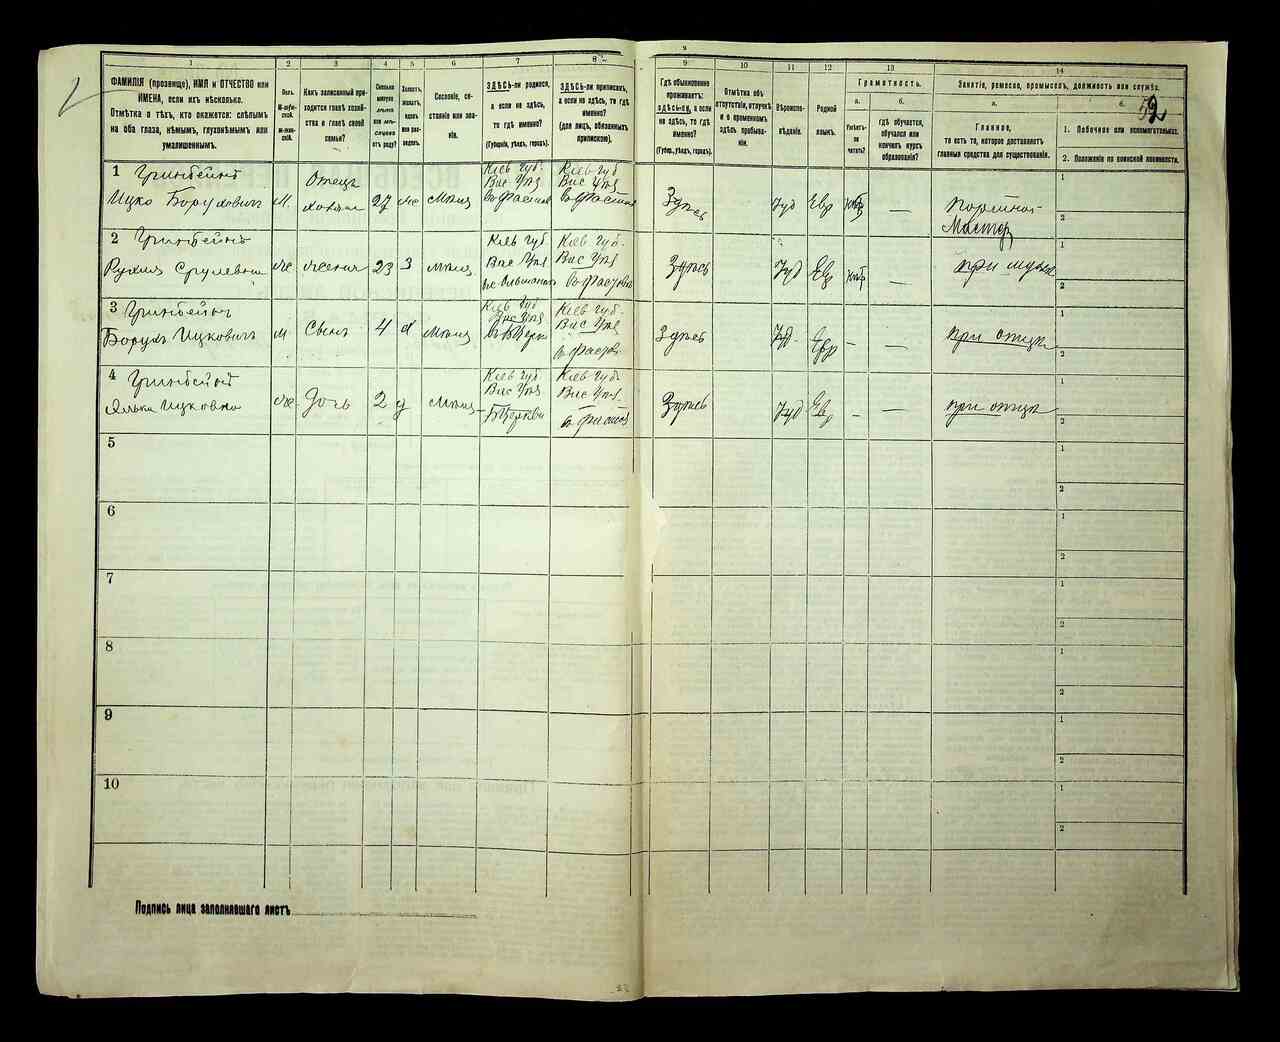 52
1
2
3
4
5
6
7
8
9
10
11
12
13
14
ФАМИЛІЯ (прозвище), ИМЯ и ОТЧЕСТВО или
ИМЕНА, если ихъ нѣсколько.
Отмѣтка о тѣхъ, кто окажется: слѣпымъ
на оба глаза, нѣмымъ, глухонѣмымъ или
умалишеннымъ.
Полъ.
М-мужской.
Ж-женскій.
Какъ записанный приходится главѣ хозяйства и главѣ своей семьи?
Сколько минуло лѣтъ или мѣсяцевъ отъ роду?
Холостъ, женатъ, вдовъ или разведенъ.
Сословіе, состояніе или званіе.
ЗДѢСЬ-ли родился,
а если не здѣсь,
то гдѣ именно?
(Губернія, уѣздъ, городъ).
ЗДѢСЬ-ли приписанъ,
а если не здѣсь, то гдѣ
именно?
(для лицъ, обязанныхъ
припискою).
Гдѣ обыкновенно
проживаетъ:
здѣсь-ли, а если
не здѣсь, то гдѣ
именно?
(Губер., уѣздъ, городъ).
Отмѣтка объ
отсутствіи, отлучкѣ
и о временномъ
здѣсь пребываніи.
Вѣроисповѣданіе.
Родной
языкъ.
Грамотность.
а.
Умѣетъ-ли
читать?
б.
гдѣ обучается,
обучался или
кончилъ курсъ
образованія?
Занятіе, ремесло, промыселъ, должность или служба.
а.
Главное,
то есть то, которое доставляетъ
главныя средства для существованія.
б.
1. Побочное или вспомогательное.
2. Положеніе по воинской повинности.
1 Гринбейнъ
Ицко Борухович М. Отецъ хозяин 27 же Мѣщ Кіев Губ. Вас Уѣз Кіев Губ Вас Уѣз Здѣсь Іуд Евр — Портной Мастер
2 Гринбейнъ
Рухля Срулевна же жена 23 З мѣщ Кіев Губ. Вас Уѣз Кіев Губ. Вас Уѣз Здѣсь Іуд Евр — при мужѣ
3 Гринбейнъ
Борухъ Ицковичъ М Сынъ 4 х Мѣщ Кіев Губ Вас Уѣз Кіев Губ. Вас Уѣз Здѣсь Іуд. Евр — — при отцѣ
4 Гринбейнъ
Ицковна же Дочь 2 д Мѣщ Кіев Губ Вас Уѣз Б Церкви Кіев Губ Вас Уѣз Здѣсь Іуд Евр — — при отцѣ
5
6
7
8
9
10
1
2
1
2
1
2
1
2
1
2
1
2
1
2
1
2
1
2
1
2
Подпись лица заполнявшаго листъ